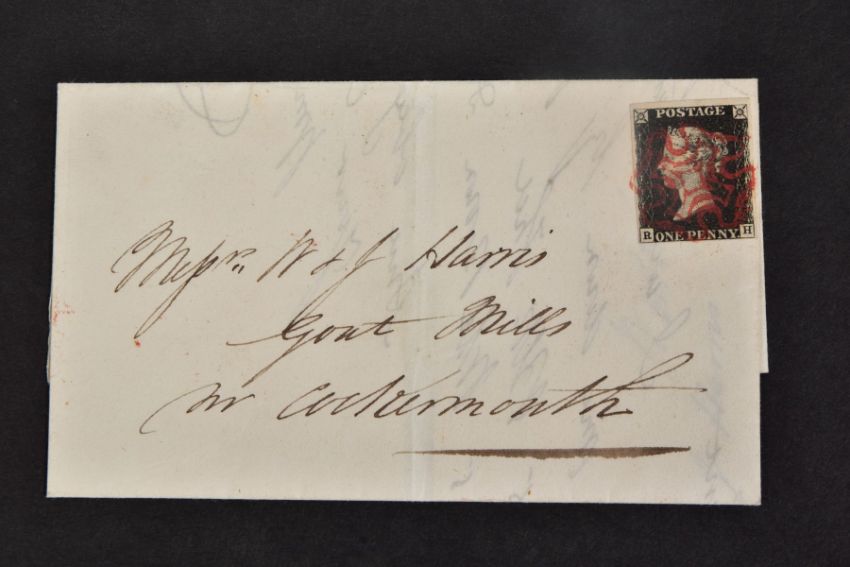 POSTAGE
ONE PENNY
R H
Messrs. W & J Harris
Goat Mills
nr Cockermouth